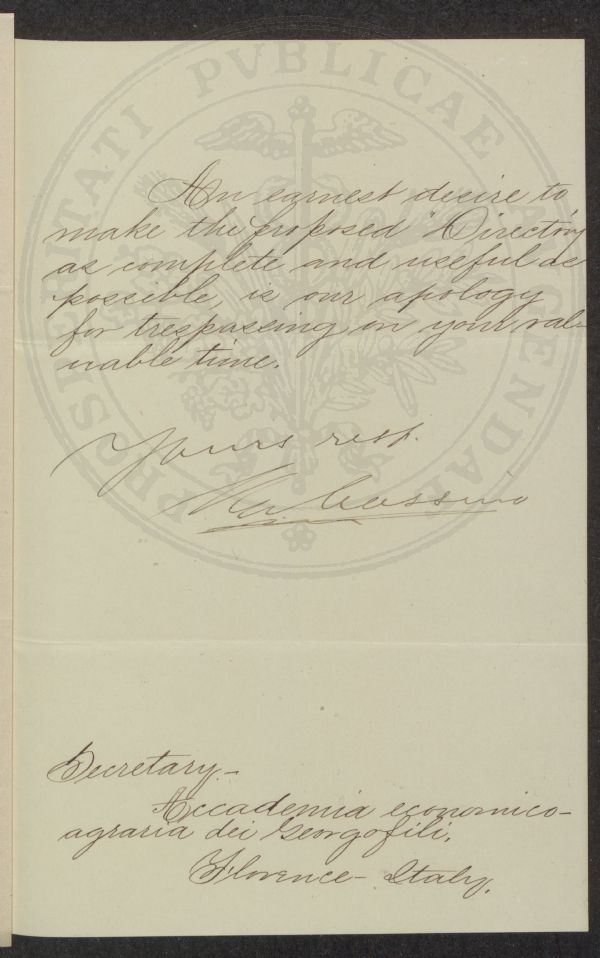 PROSPERITATI PVBLICAE AVGENDAE
An earnest desire to
make the proposed "Directory
as complete and useful as
possible, is our apology
for trespassing on your val-
uable time.
Yours resp.
Cassino
Secretary-
Accademia economico-
agraria dei Georgofili,
Florence - Italy.